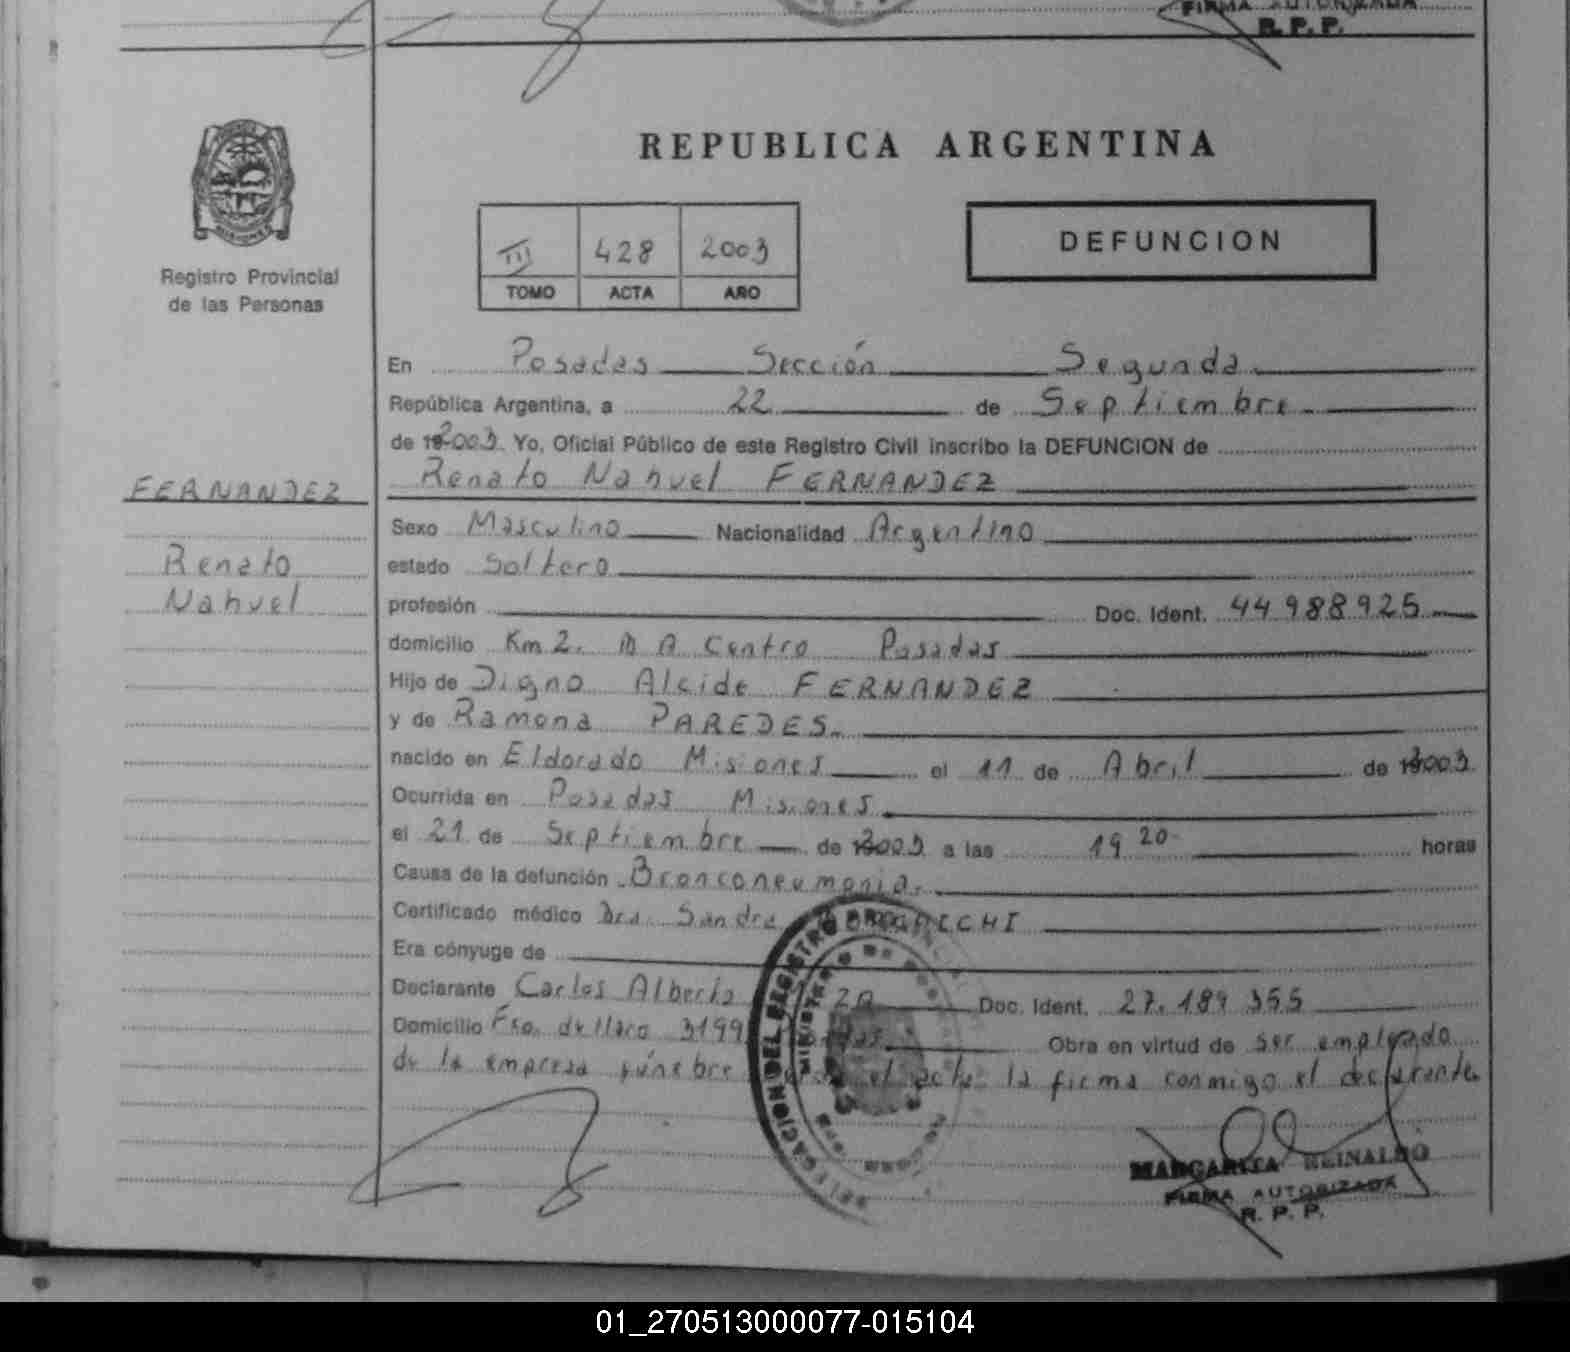 FIRMA AUTORIZADA
R. P. P.
REPUBLICA ARGENTINA
III 428 2003
TOMO ACTA AÑO
DEFUNCION
Registro Provincial
de las Personas
En Posadas Sección Segunda
República Argentina, a 22 de Septiembre
de 2003 Yo, Oficial Público de este Registro Civil inscribo la DEFUNCION de
Renato Nahuel FERNANDEZ
FERNANDEZ
Renato
Nahuel
Sexo Masculino Nacionalidad Argentino
estado Soltero
profesión Doc. Ident. 44.988.925
domicilio Km 2. B A Centro Posadas
Hijo de Digno Alcide FERNANDEZ
y de Ramona PAREDES.
nacido en Eldorado Misiones el 11 de Abril de 2003
Ocurrida en Posadas Misiones
el 21 de Septiembre de 2003 a las 19 20 horas
Causa de la defunción Bronconeumonia.
Certificado médico Dra. Sandra
Era cónyuge de
Declarante Carlos Alberto Doc. Ident. 27.189.355
Domicilio Fco. de Haro 3199 Obra en virtud de ser empleado
de la empresa fúnebre el acta la firma conmigo el declarante.
DELEGACION DEL REGISTRO PROVINCIAL
MINISTERIO DE
MARGARITA REINALDO
FIRMA AUTORIZADA
R. P. P.
01_270513000077-015104